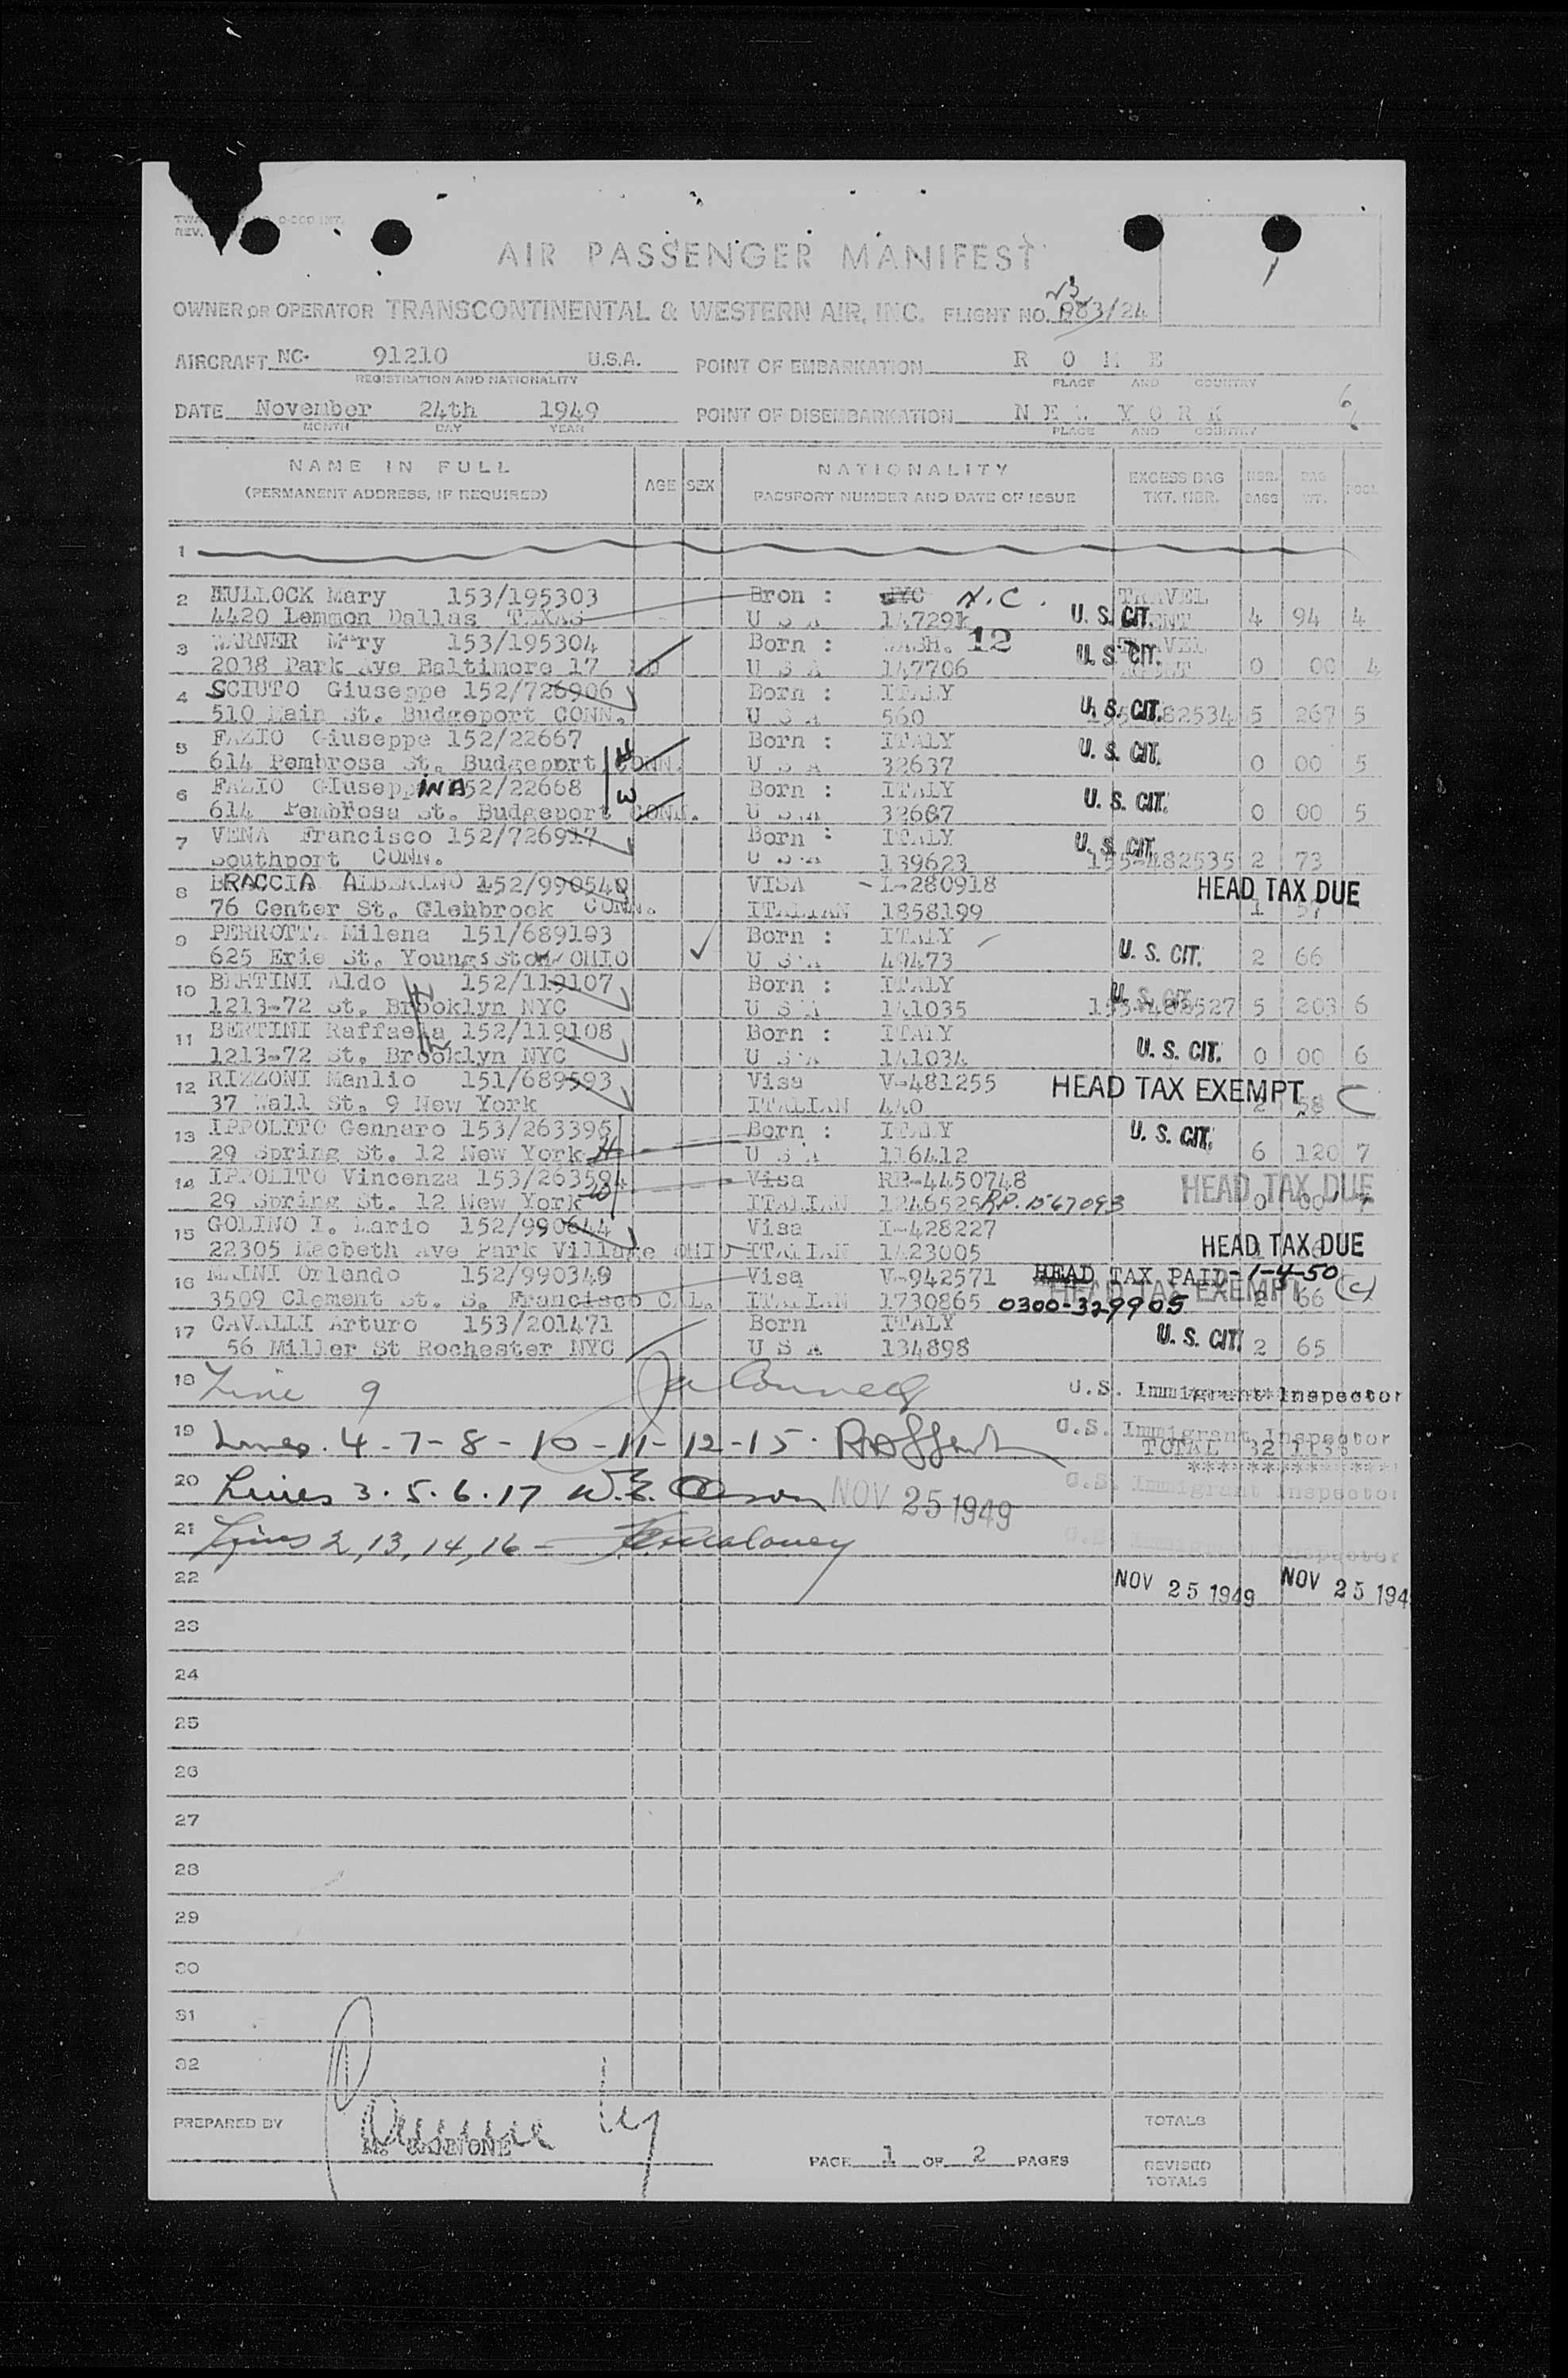 REV.
AIR PASSENGER MANIFEST
OWNER OR OPERATOR TRANSCONTINENTAL & WESTERN AIR, INC. FLIGHT NO. 883/24
AIRCRAFT NC- 91210 U.S.A. POINT OF EMBARKATION R O M E
REGISTRATION AND NATIONALITY PLACE AND COUNTRY
DATE November 24th 1949 POINT OF DISEMBARKATION N E W Y O R K
MONTH DAY YEAR PLACE AND COUNTRY
NAME IN FULL AGE SEX NATIONALITY EXCESS BAG NBR. BAG
(PERMANENT ADDRESS, IF REQUIRED) PASSPORT NUMBER AND DATE OF ISSUE TKT. NBR. BAGS WT.
1
2 MULLOCK Mary 153/195303 Bron : NYC N.C. TRAVEL
4420 Lemmon Dallas TEXAS U S A U. S. CIT. 4 94 4
3 WARNER Mary 153/195304 Born : WASH. 12
2038 Park Ave Baltimore 17 MD U S A 147706 U. S. CIT. 0 00 4
4 SCIUTO Giuseppe 152/726906 Born : ITALY
510 Main St. Budgeport CONN. U S A 560 U. S. CIT. 155-482534 5 267 5
5 FAZIO Giuseppe 152/22667 Born : ITALY
614 Pembrosa St. Budgeport CONN. H U S A 32637 U. S. CIT. 0 00 5
6 FAZIO GIuseppINA 152/22668 Born : ITALY
614 Pembrosa St. Budgeport CONN. U S A 32687 U. S. CIT. 0 00 5
7 VENA Francisco 152/726917 Born : ITALY
Southport CONN. U S A 139623 U. S. CIT. 155-482535 2 73
8 BRACCIA ALBERINO 152/990540 VISA I-280918 HEAD TAX DUE
76 Center St. Glenbrook CONN. ITALIAN 1858199 1 57
9 PERROTTA Milena 151/689103 Born : ITALY
625 Erie St. Youngstown OHIO U S A 49473 U. S. CIT. 2 66
10 BERTINI Aldo 152/119107 Born : ITALY
1213-72 St. Brooklyn NYC U S A 141035 U. S. CIT. 155-482527 5 203 6
11 BERTINI Raffaela 152/119108 Born : ITALY
1213-72 St. Brooklyn NYC U S A 141034 U. S. CIT. 0 00 6
12 RIZZONI Manlio 151/689593 Visa V-481255 HEAD TAX EXEMPT
37 Wall St. 9 New York ITALIAN 440 2 58 C
13 IPPOLITO Gennaro 153/263395 Born : ITALY U. S. CIT.
29 Spring St. 12 New York H U S A 116412 6 120 7
14 IPPOLITO Vincenza 153/263594 Visa RE-4450748 HEAD TAX DUE
29 Spring St. 12 New York W ITALIAN 1246525 RP. 1567093 0 00 7
15 GOLINO I. Mario 152/990644 Visa I-428227
22305 Macbeth Ave Park Village OHIO ITALIAN 1423005 HEAD TAX DUE
16 MAINI Orlando 152/990349 Visa V-942571 HEAD TAX PAID-1-4-50
3509 Clement St. S. Francisco CAL. ITALIAN 1730865 0300-329905 HEAD TAX EXEMPT 2 66 (C)
17 CAVALLI Arturo 153/201471 Born ITALY
56 Miller St Rochester NYC U S A 134898 U. S. CIT. 2 65
18 Line 9 U.S. Immigrant Inspector
19 Lines. 4-7-8-10-11-12-15. U.S. Immigrant Inspector
TOTAL 32
20 Lines 3.5.6.17 W.E. Olson NOV 25 1949 U.S. Immigrant Inspector
21 Lines 2,13,14,16- Maloney U.S. Immigrant Inspector
22 NOV 25 1949 NOV 25 194
23
24
25
26
27
28
29
30
31
32
PREPARED BY TOTALS
PAGE 1 OF 2 PAGES REVISED
TOTALS